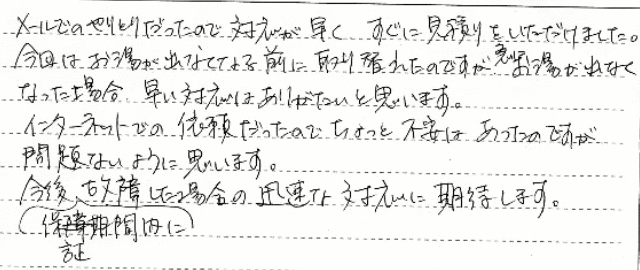 メールでのやりとりだったので対応が早く すぐに見積りをいただけました。
今回はお湯が出なくなる前に取り替えれたのですが急にお湯が出なく
なった場合、早い対応はありがたいと思います。
インターネットでの依頼だったのでちょっと不安は あったのですが
問題ないように思います。
今後、故障した場合の迅速な対応に期待します。
(保証期間内に)